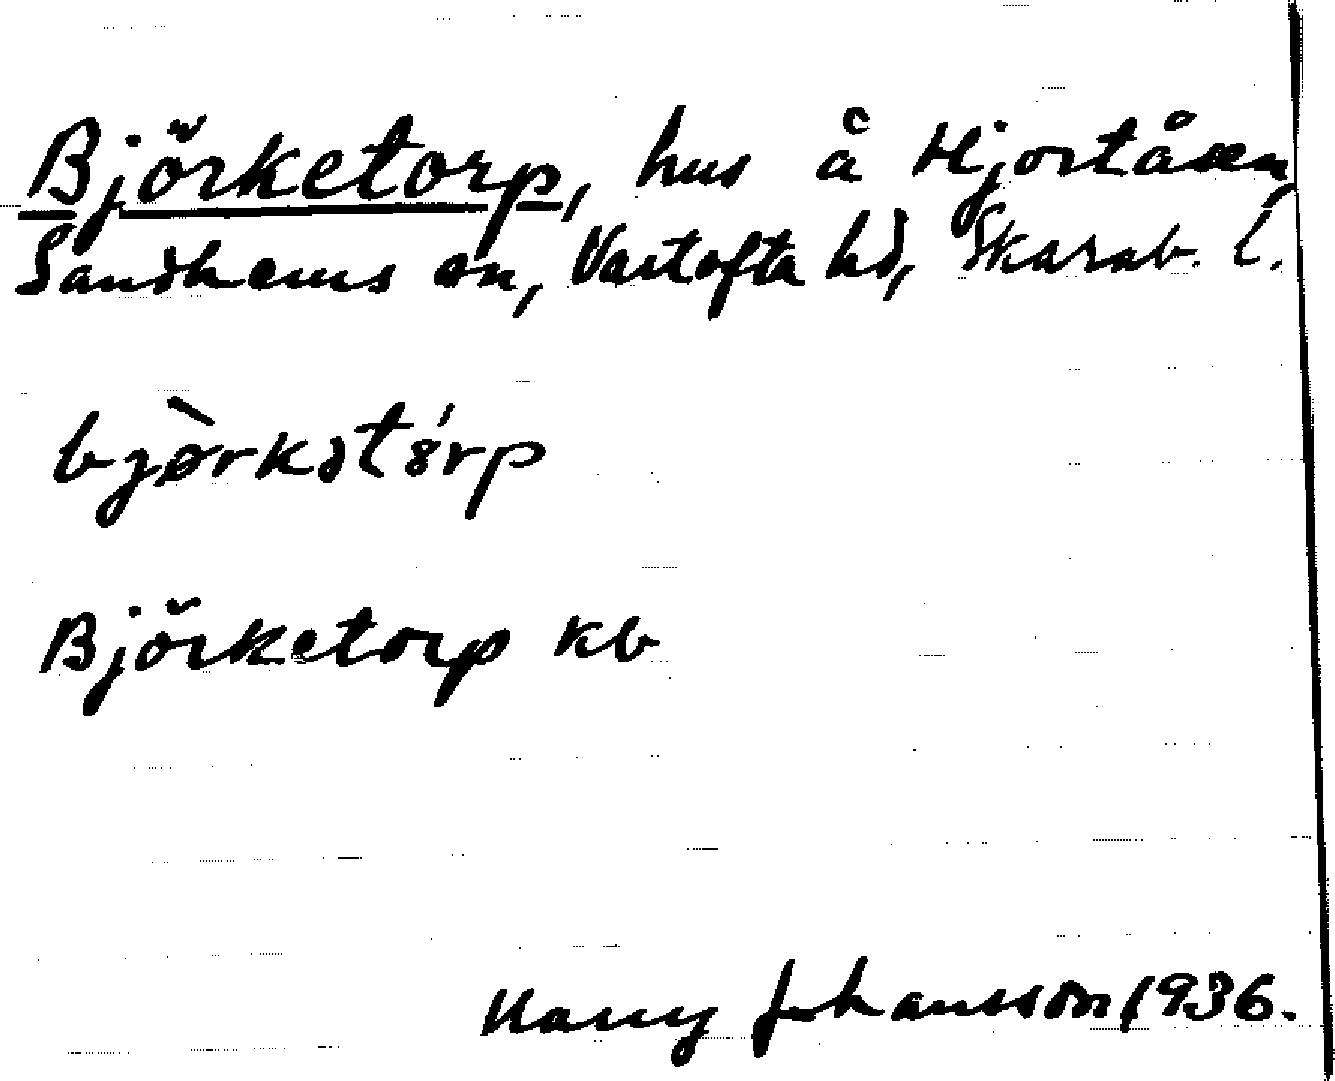 Björketorp, hus å Hjortåsen,
Sandhems sn, Vartofta hd, Skarab. l.
bjø̀rkətórp
Björketorp kb
Harry Johansson 1936.